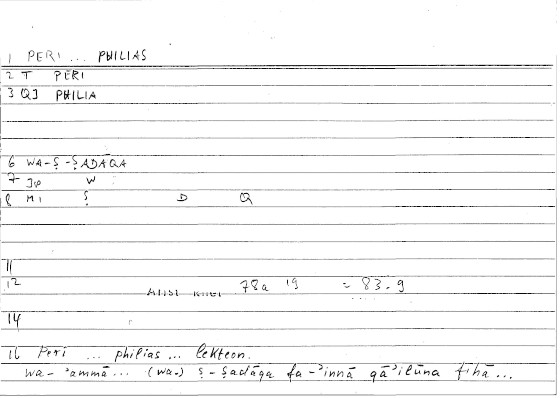 1 PERI ... PHILIAS
2 T PERI
3 QJ PHILIA
6 WA-Ṣ-ṢADĀQA
7 Jp W
8 MI Ṣ D Q
11
12 78a 19 = 83.9
14
16 Peri ... philias ... lekteon.
wa-ʾammā ... (wa-) ṣ-ṣadāqa fa-ʾinnā qāʾilūna fīhā ...